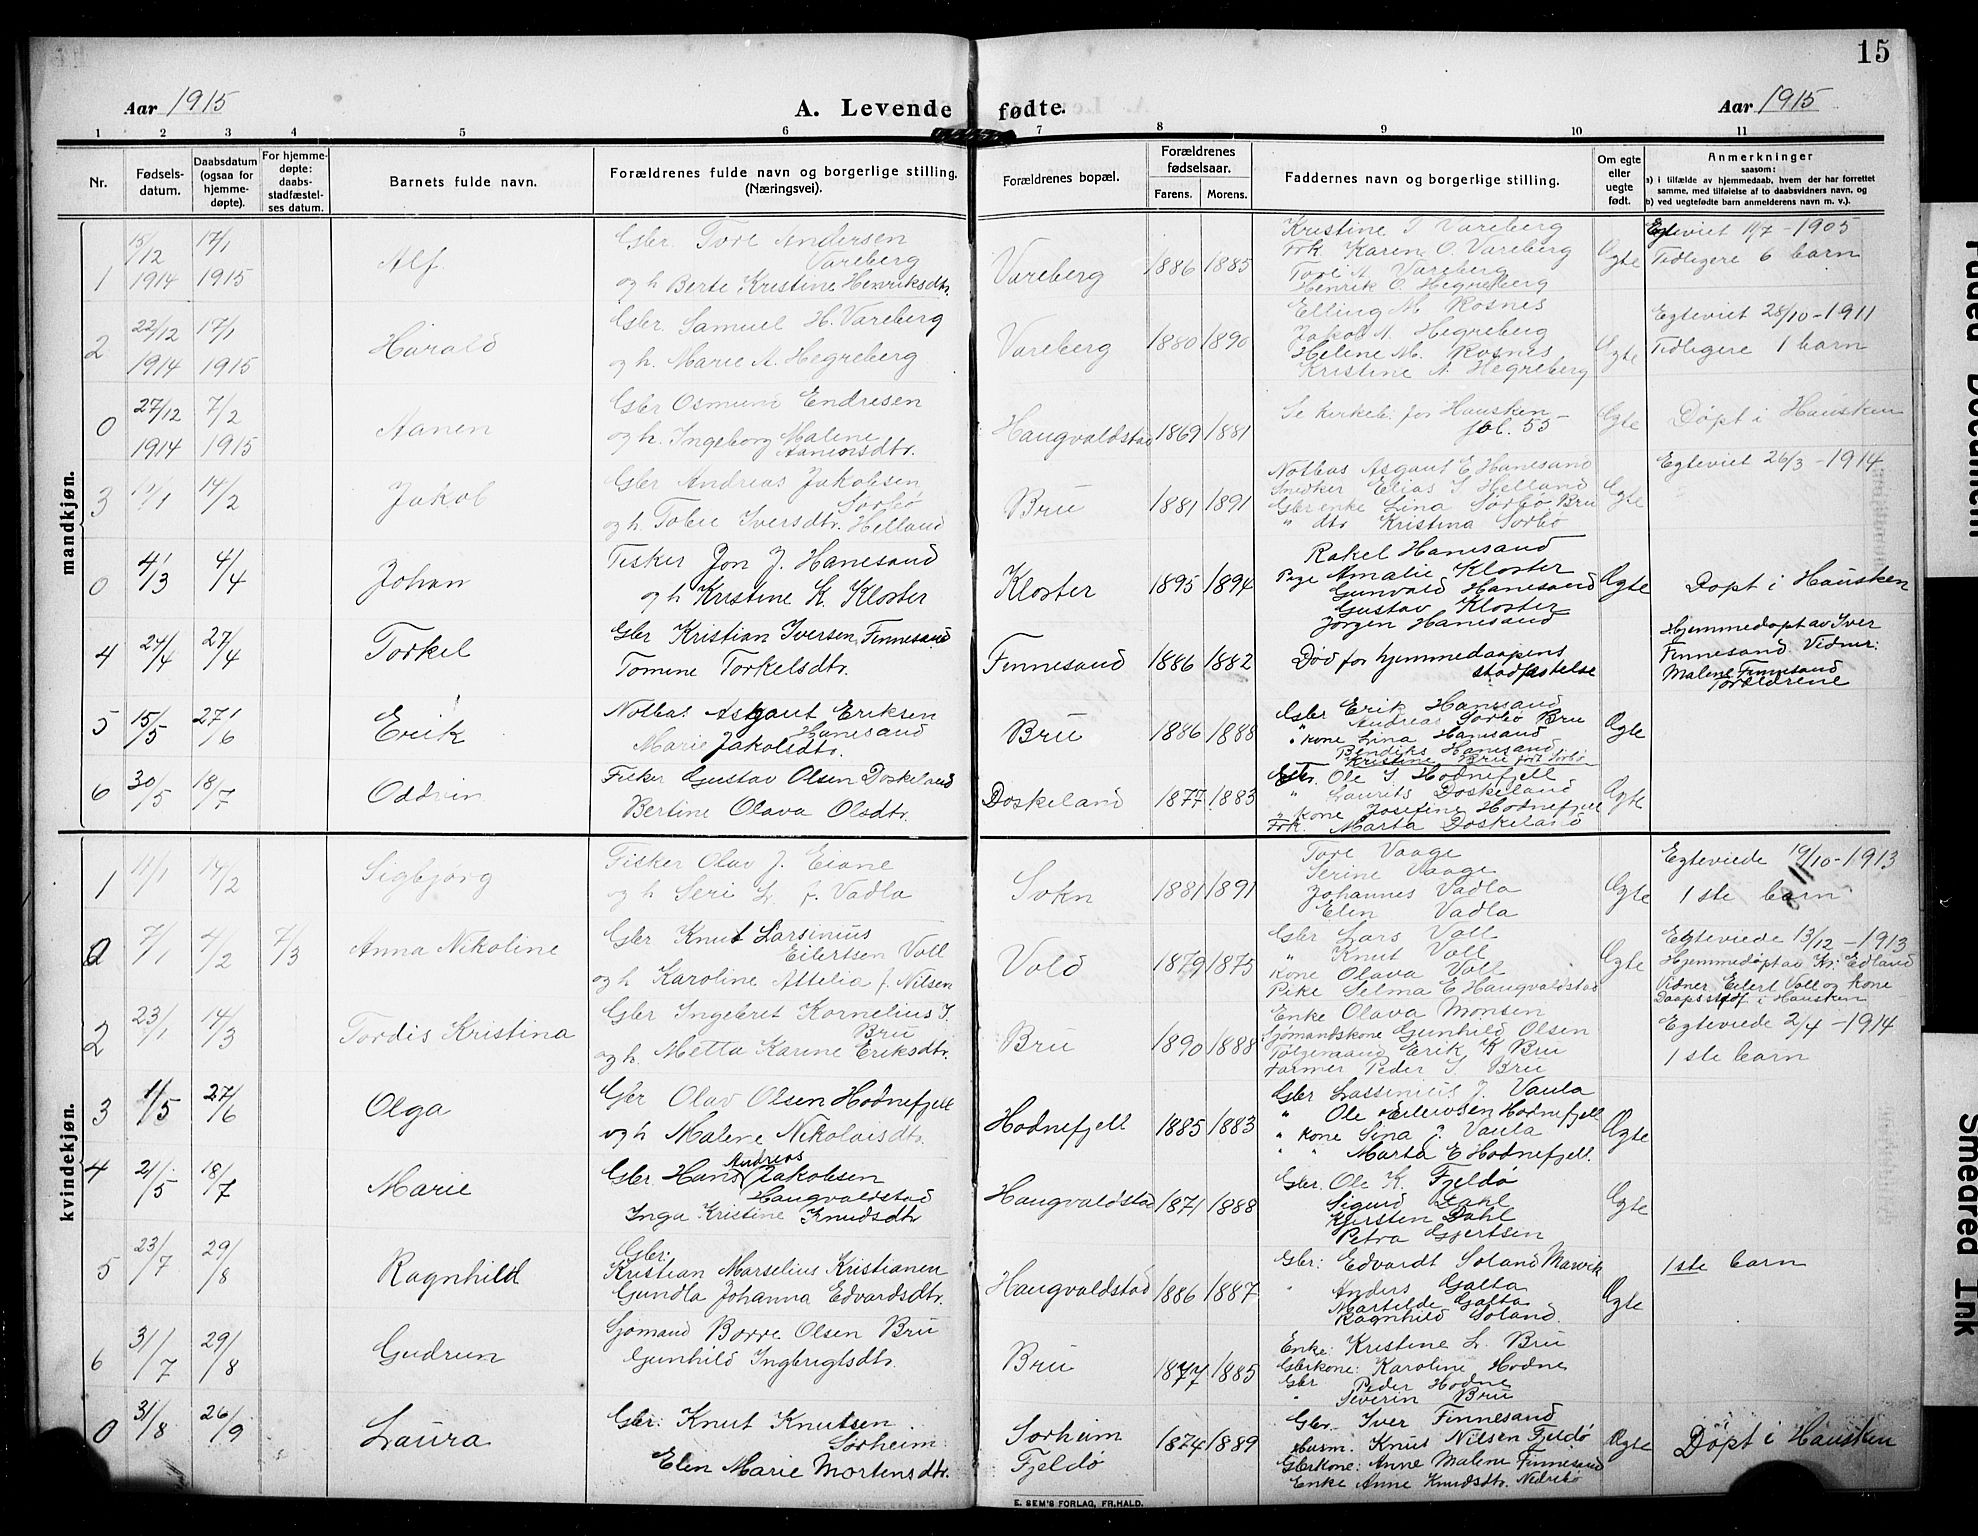 15
Aar 1915 A. Levende fødte. Aar 1915
1 2 3 4 5 6 7 8 9 10 11
Nr. Fødsels-datum. Daabsdatum (ogsaa for hjemme-døpte). For hjemme-døpte: daabs-stadfæstel-ses datum. Barnets fulde navn. Forældrenes fulde navn og borgerlige stilling. (Næringsvei). Forældrenes bopæl. Forældrenes fødselsaar. Farens. Morens. Faddernes navn og borgerlige stilling. Om egte eller uegte født. Anmerkninger saasom: a) i tilfælde av hjemmedaab, hvem der har forrettet samme, med tilføielse af to daabsvidners navn, og b) ved uegtefødte barn anmelderens navn m. v.).
mandkjøn.
1 15/12 1914 17/1 1915 Alf. Gbr. Tore Andersen Vareberg og h. Berte Kristine Henriksdtr. Vareberg 1886 1885 Kristine T Vareberg Frk Karen O. Vareberg Tore A. Vareberg Henrik O. Hegreberg Ogte Egteviet 11/7 - 1905 Tidligere 6 barn
2 22/12 1914 17/1 1915 Harald Gbr. Samuel H. Vareberg og h. Marie A. Hegreberg Vareberg 1880 1890 Elling M. Rosnes Jakob A. Hegreberg Helene M. Rosnes Kristine A. Hegreberg Ogte Egteviet 28/10 - 1911 Tidligere 1 barn
0 27/12 1914 7/2 1915 Aanen Gbr Osmund Endresen og h. Ingeborg Malene Aanensdtr. Haugvaldstad 1869 1881 Se kirkeb. for Hausken fol. 55 Ogte Døpt i Hausken
3 1 14/2 Jakob Gbr Andreas Jakobsen Sørbø og h. Tobie Iversdtr. Helland Bru 1881 1891 Notbas Asgaut E Hanesand Snedker Elias I Helland Gbr enke Lina Sørbø Bru " dtr Kristina Sørbø Ogte Egteviet 26/3 - 1914
0 4/3 4/4 Johan Fisker Jon J. Hanesand og h Kristine K. Kloster Kloster 1895 1894 Rakel Hanesand Pige Amalie Kloster Gunvald Hanesand Gustav Kloster Jørgen Hanesand Ogte Døpt i Hausken
4 24/4 27/4 Torkel Gbr Kristian Iversen Finnesand Tomine Torkelsdtr. Finnesand 1886 1882 Død før hjemmedaapens stadfæstelse Hjemmedøpt av Iver Finnesand. Vidner: Malene Finnesand Forældrene
5 15/5 27/6 Erik Notbas Asgaut Eriksen Hanesand Marie Jakobsdtr. Bru 1886 1888 Gbr Erik Hanesand " Andreas Sørbø Bru " kone Lina Hanesand Bendiks Hanesand Kristine Bru født Sørbø Ogte
6 30/5 18/7 Oddvin Fisker Gustav Olsen Doskeland Bertine Olava Olsdtr. Doskeland 1877 1883 Gbr. Ole I Hodnefjell " Laurits Doskeland " kone Josefine Hodnefjell Frk. Marta Doskeland Ogte
kvindekjøn.
1 11/1 14/2 Sigbjørg Fisker Olav J. Eiane og h Seri L. f. Vadla Sokn 1881 1891 Tore Vaage Serine Vaage Johannes Vadla Elen Vadla Ogte Egteviede 19/10 - 1913 1 ste barn
0 7/1 4/2 7/3 Anna Nikoline Gbr Knut Larsinius Eilertsen Voll og h Karoline Attelia f. Nilsen Vold 1879 1875 Gbr Lars Voll " Knut Voll Kone Olava Voll Pike Selma E Haugvaldstad Ogte Egteviede 13/12 - 1913 Hjemmedøpt av Kr. Edland Vidner Eilert Voll og kone Daapsstadf. i Hausken
2 23/1 14/3 Tordis Kristina Gbr Ingebret Kornelius I. Bru og h. Metta Karine Eriksdtr. Bru 1890 1888 Enke Olava Monsen Sjømandskone Gunhild Olsen Erik K Bru Farmer Peder I Bru Egteviede 2/4 - 1914 1 ste barn
3 1/5 27/6 Olga Gbr Olav Olsen Hodnefjell og h Malene Nikolaisdtr. Hodnefjell 1885 1883 Gbr Lassinius J. Vaula " Ole Eilertsen Hodnefjell " kone Lina J. Vaula " " Marta E Hodnefjell. Ogte
4 21/5 18/7 Marie Gbr Hans Andreas Jakobsen Haugvaldstad Inga Kristine Knudsdtr Haugvaldstad 1871 1888 Gbr. Ole K. Fjeldø Sigurd Dahl Kjersten Dahl Petra Gjertsen Ogte
5 23/7 29/8 Ragnhild Gbr: Kristian Marselius Kristianen Gundla Johanna Edvardsdtr. Haugvaldstad 1886 1887 Gbr: Edvardt Soland Marvik " Anders Galta Martilde Galta Ragnhild Soland. Ogte 1ste barn
6 31/7 29/8 Gudrun Sjømand Borre Olsen Bru Gunhild Ingbrigtsdtr. Bru 1877 1885 Enke: Kristine L. Bru Gbrkone: Karoline Hodne Gbr Peder Hodne " Severin Bru
0 31/8 26/9 Laura Gbr: Knut Knutsen Sørheim: Elen Marie Mortensdtr. Sørheim Fjeldø 1874 1889 Gbr. Iver Finnesand Husm. Knut Nilsen Fjeldø Gbrkone: Anne Malene Finnesand Enke Anne Knudsdtr. Nedrebø Ogte Døpt i Hausken
E. SEM'S FORLAG, FR.HALD.
Faded Document
Smeared Ink